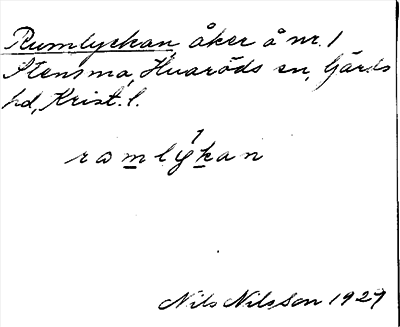 Rumlyckan åker å nr. 1
Stensma, Huaröds sn, Gärds
hd, Krist. l.
ramlykan
Nils Nilsson 1929